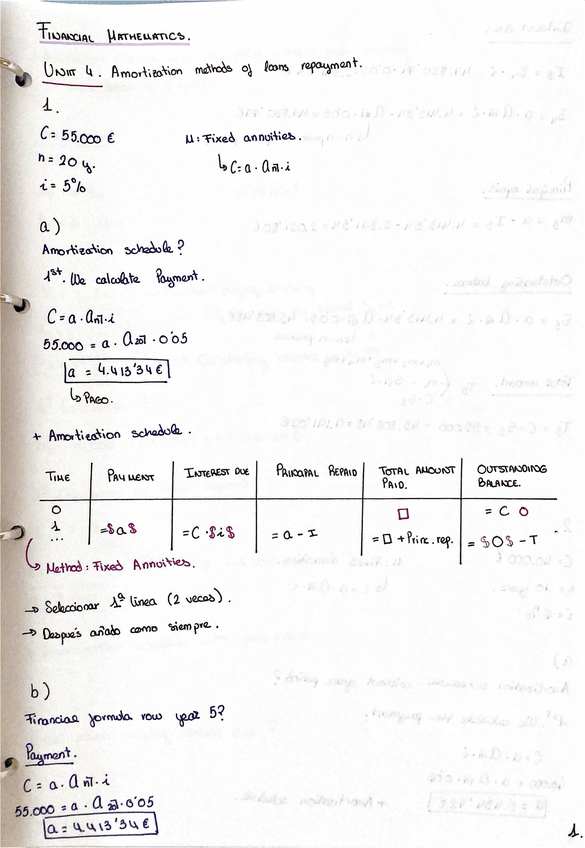 FINANCIAL MATHEMATICS.
UNIT 4. Amortization methods of loans repayment.
1.
C = 55.000 €
M: Fixed annuities.
n = 20 y.
↳ C = a · a n̅| · i
i = 5%
a)
Amortization schedule?
1st. We calculate Payment.
C = a · a n̅| · i
55.000 = a · a 20̅| · 0'05
a = 4.413'34 €
↳ PAGO.
+ Amortization schedule.
TIME PAYMENT INTEREST DUE PRINCIPAL REPAID TOTAL AMOUNT PAID. OUTSTANDING BALANCE.
0 □ = C O
1 =$a$ =C·$i$ = a - I = □ + Princ. rep. = $O$ - T
...
↳ Method: Fixed Annuities.
→ Seleccionar 1ª linea (2 veces).
→ Después añado como siempre.
b)
Financial formula row year 5?
Payment.
C = a · a n̅| · i
55.000 = a · a 20̅| · 0'05
a = 4.413'34 €
1.